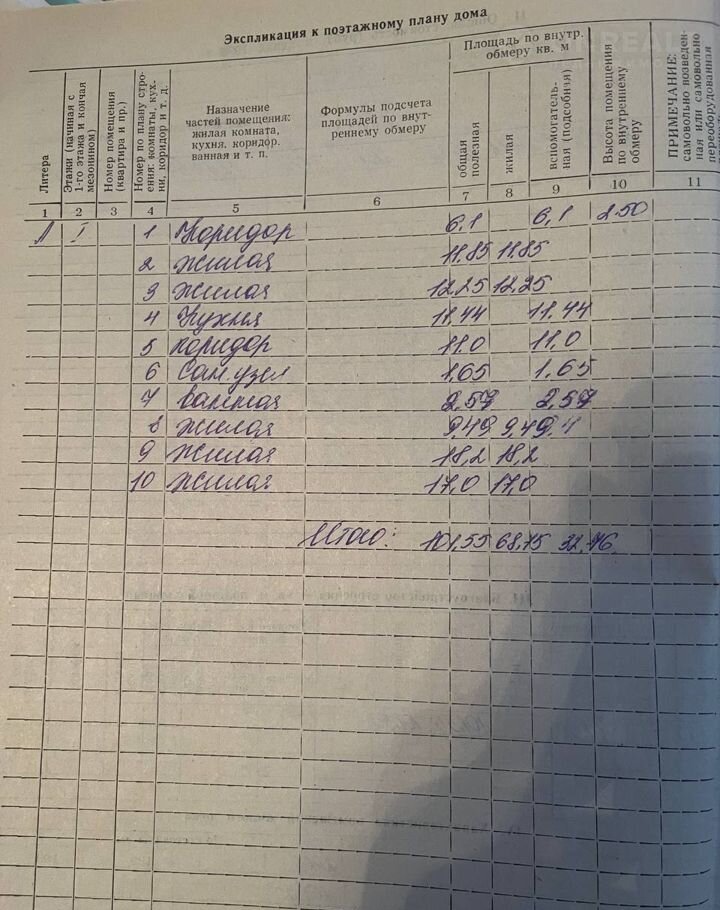 Экспликация к поэтажному плану дома
Литера
Этажи (начиная с 1-го этажа и кончая мезонином)
Номер помещения (квартира и пр.)
Номер по плану строения: комнаты, кухни, коридор и т. д.
Назначение частей помещения: жилая комната, кухня, коридор. ванная и т. п.
Формулы подсчета площадей по внутреннему обмеру
Площадь по внутр. обмеру кв. м
общая полезная
жилая
вспомогательная (подсобная)
Высота помещения по внутреннему обмеру
ПРИМЕЧАНИЕ: самовольно возведенная или самовольно переоборудованная
1 2 3 4 5 6 7 8 9 10 11
Л I 1 Коридор 6,1 6,1 2.50
2 жилая 11.85 11.85
3 жилая 12.25 12,25
4 Кухня 11,44 11.44
5 коридор 11.0 11.0
6 Сан. узел 1,65 1.65
7 ванная 2,57 2,57
8 жилая 9,49 9,49
9 жилая 18,2 18,2
10 жилая 17,0 17,0
Итого: 101,55 68,75 32,76